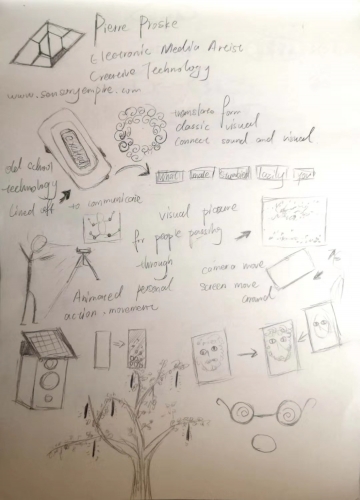 Pierre Proske
Electronic Media Artist
Creative Technology
www.sensoryempire.com
translate form
classic visual
connect sound and visual
old school
technology
lined off
to communicate
visual picture
for people passing
through
camera move
screen move
around
Animated personal
action. movement